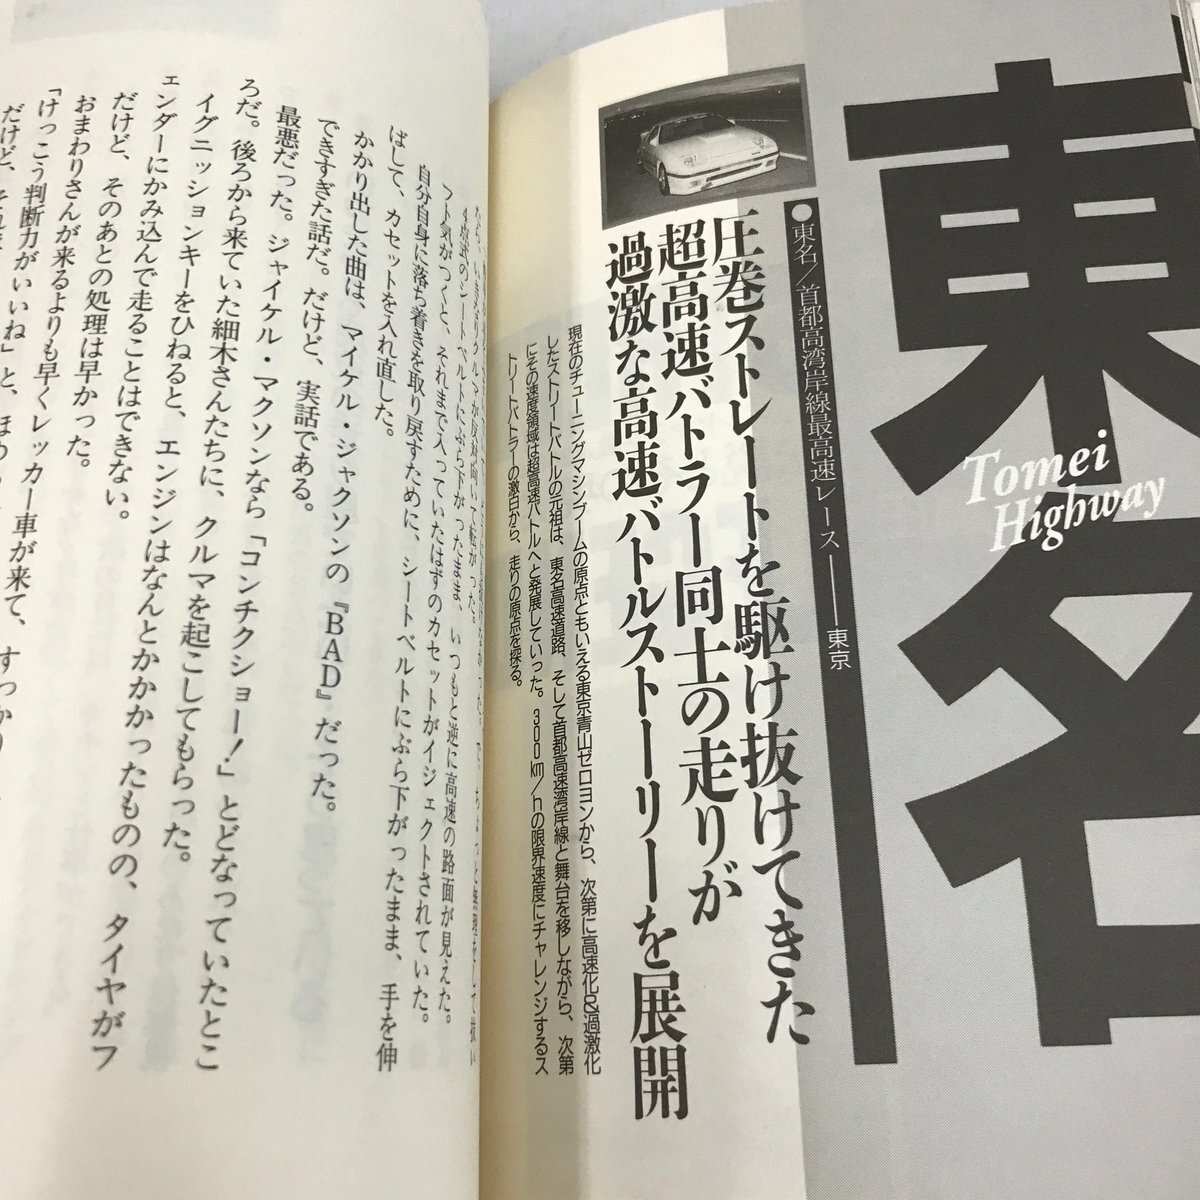 東名
Tomei
Highway
●東名／首都高湾岸線最高速レース――東京
圧巻ストレートを駆け抜けてきた
超高速バトラー同士の走りが
過激な高速バトルストーリーを展開
現在のチューニングマシンブームの原点ともいえる東京青山ゼロヨンから、次第に高速化&過激化
したストリートバトルの元祖は、東名高速道路、そして首都高速湾岸線と舞台を移しながら、次第
にその速度領域は超高速バトルへと発展していった。300km/hの限界速度にチャレンジするス
トリートバトラーの激白から、走りの原点を探る。
クルマが反対向いて転がった。
4点式のシートベルトにぶら下がったまま、いつもと逆に高速の路面が見えた。
フト気がつくと、それまで入っていたはずのカセットがイジェクトされていた。
自分自身に落ち着きを取り戻すために、シートベルトにぶら下がったまま、手を伸
ばして、カセットを入れ直した。
かかり出した曲は、マイケル・ジャクソンの『BAD』だった。
できすぎた話だ。だけど、実話である。
最悪だった。ジャイケル・マクソンなら「コンチクショー!」とどなっていたとこ
ろだ。後ろから来ていた細木さんたちに、クルマを起こしてもらった。
イグニッションキーをひねると、エンジンはなんとかかかったものの、タイヤがフ
ェンダーにかみ込んで走ることはできない。
だけど、そのあとの処理は早かった。
おまわりさんが来るよりも早くレッカー車が来て、すっかり
「けっこう判断力がいいね」と、ほめ
だけど、それ